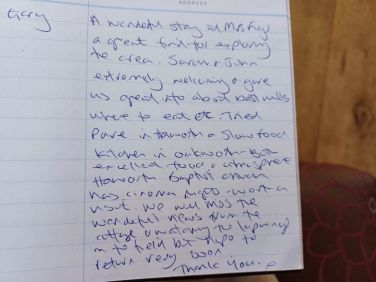 ADDRESS
Gary
A wonderful stay at Mrs
a great find for exploring
the area. Sarah + John
extremely welcoming + gave
us great info about best walks
where to eat etc. Tried
in Haworth + Slow food
Kitchen in Oakworth - Both
excellent food + atmosphere
Haworth Baptist church
has cinema nights - worth a
visit. We will miss the
wonderful views from the
cottage + watching the lapwings
in the field but hope to
return very soon
Thank you.